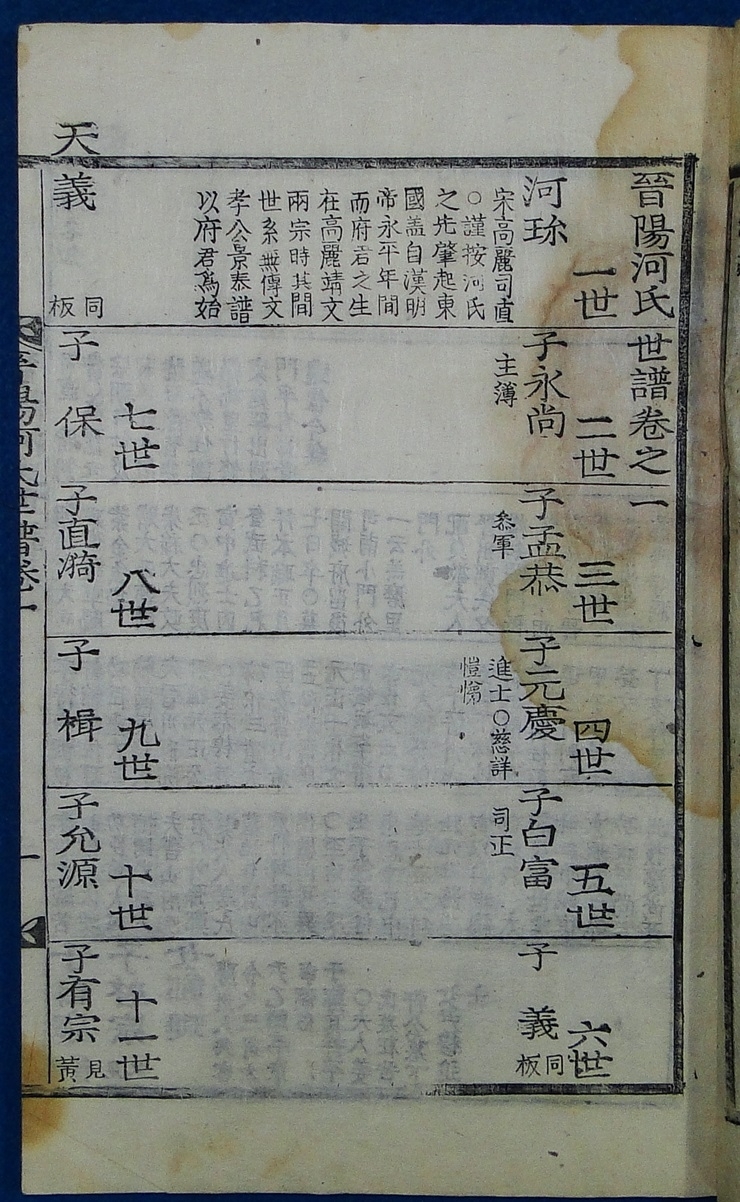 晉陽河氏世譜卷之一
一世
河珎
宋高麗司直
○謹按河氏
之先肇起東
國盖自漢明
帝永平年間
而府君之生
在高麗靖文
兩宗時其間
世系無傳文
孝公景泰譜
以府君爲始
二世
子永尚
主簿
三世
子孟恭
叅軍
四世
子元慶
進士○慈詳
愷悌
五世
子白富
司正
六世
子義
同板
天
義
同板
七世
子保
八世
子直漪
九世
子楫
十世
子允源
十一世
子有宗
見黃
晉陽河氏世譜卷一
一